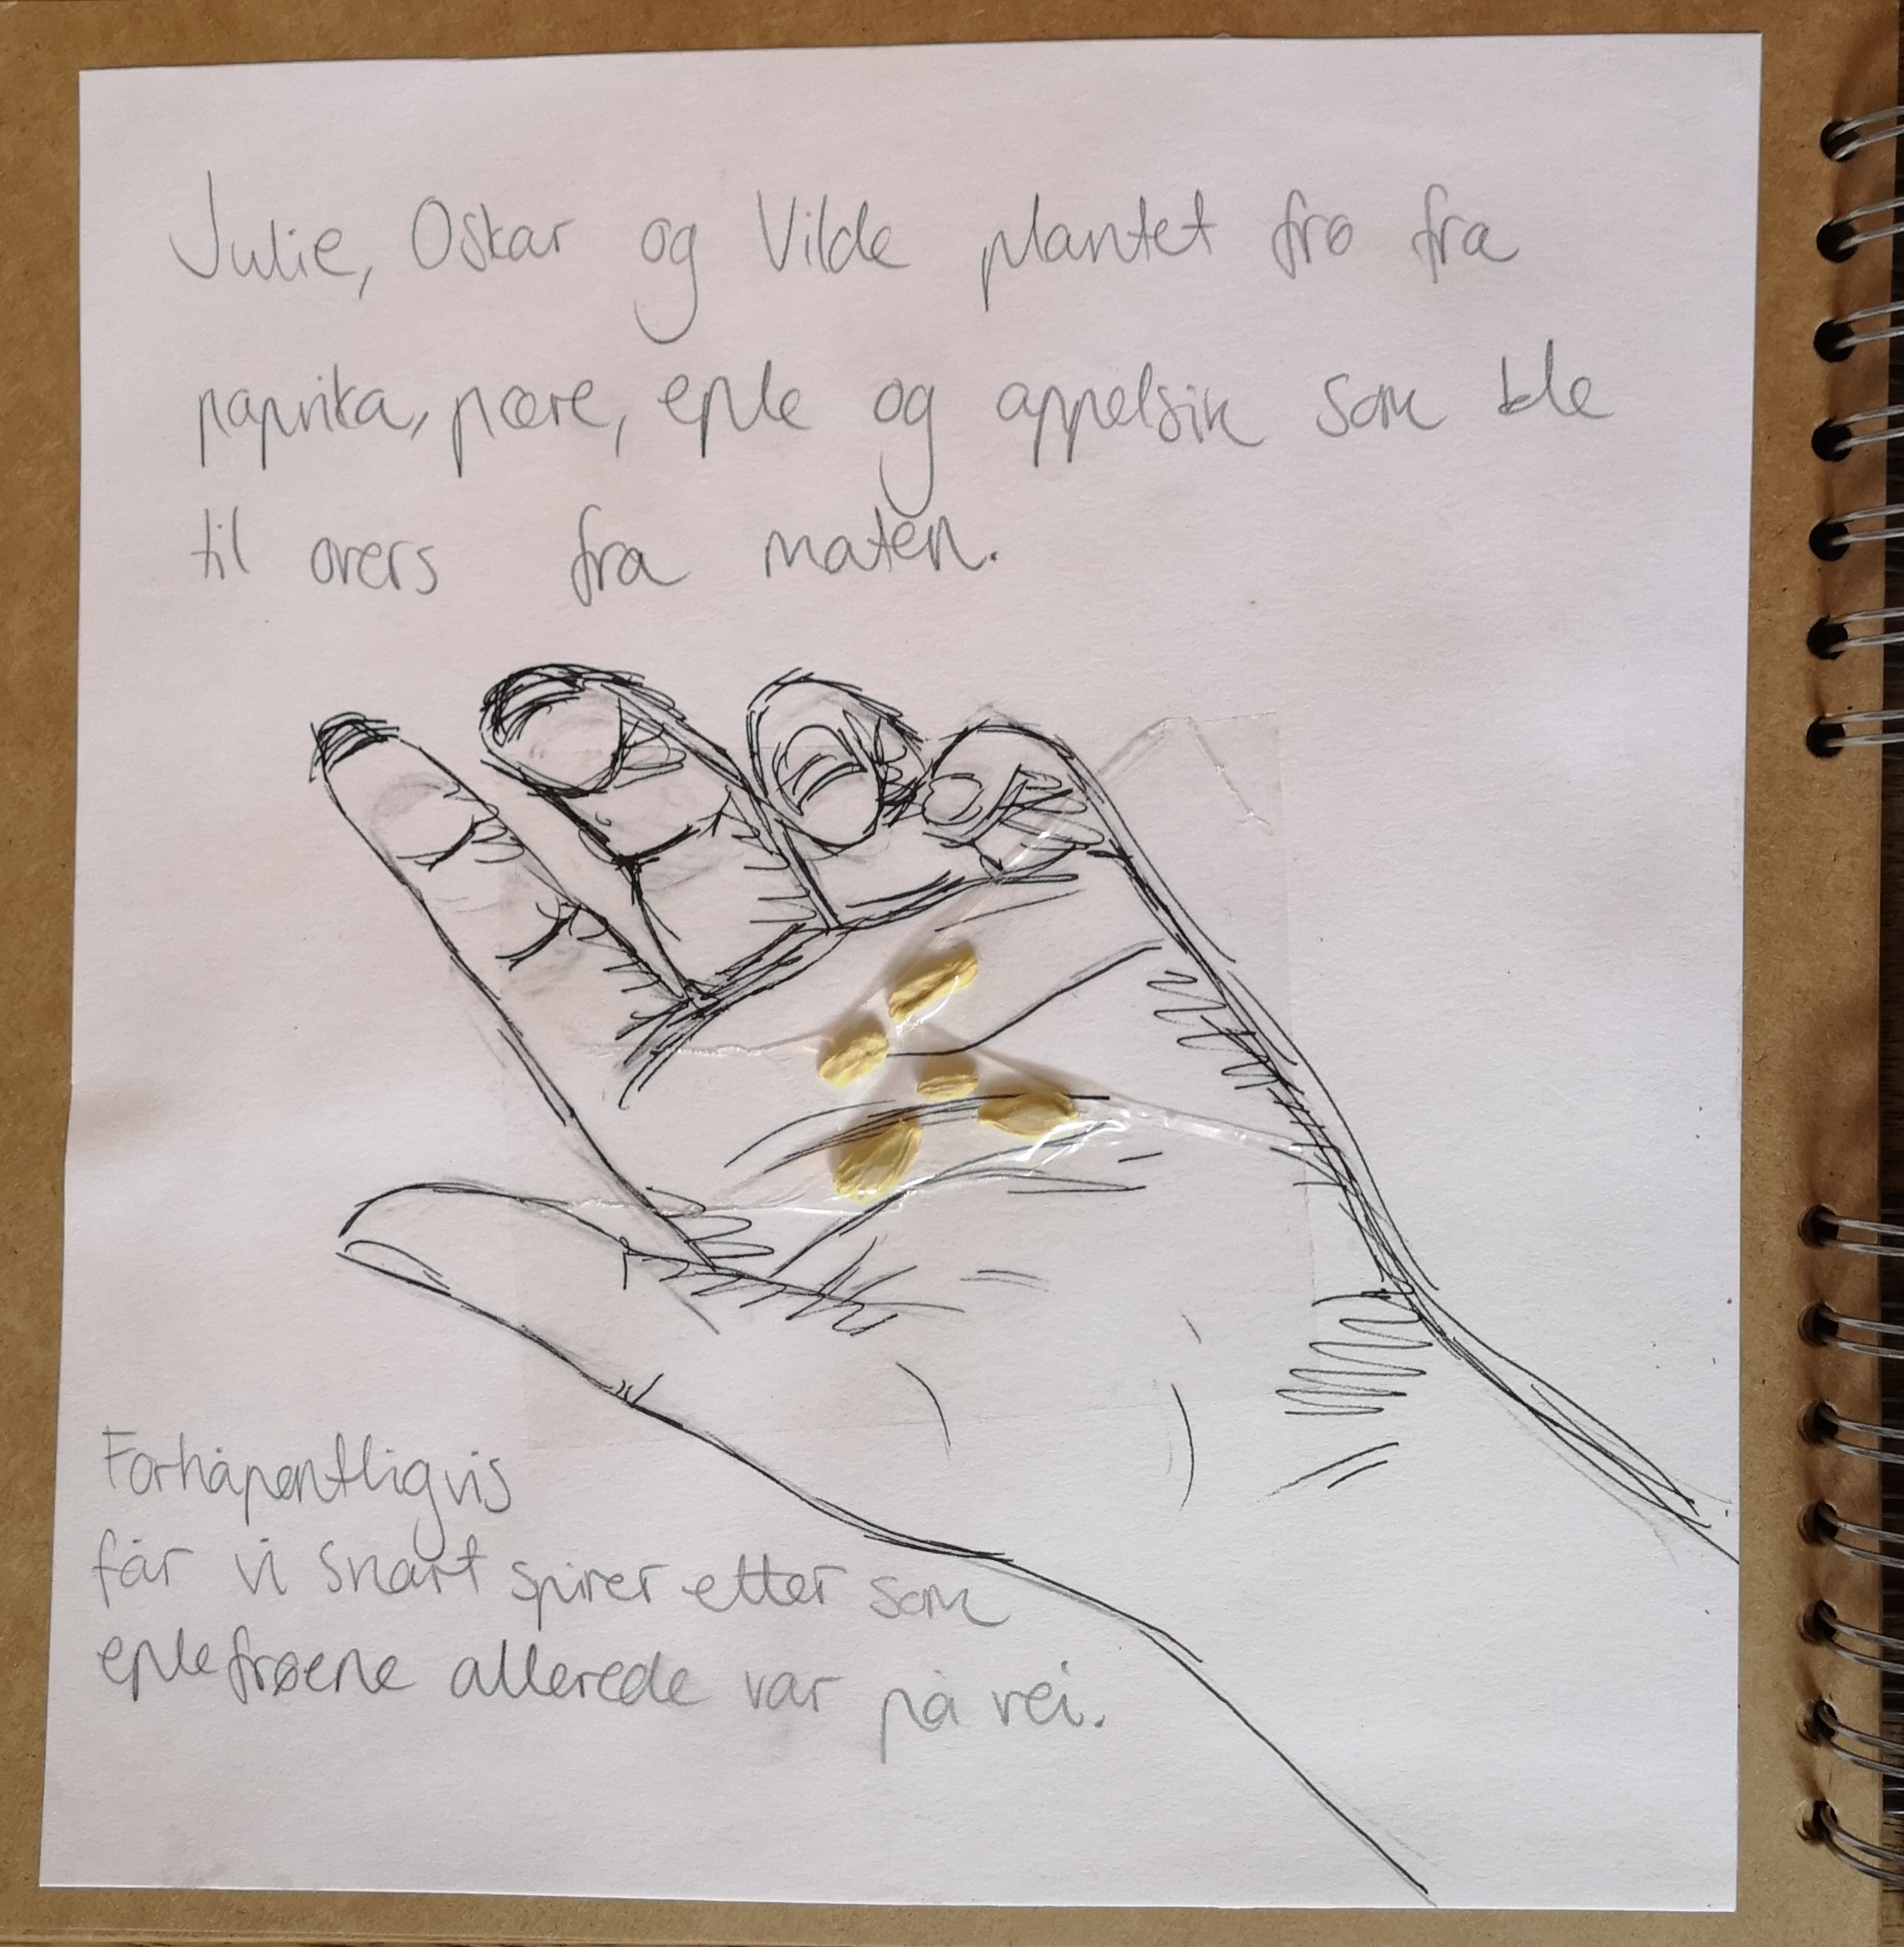 Julie, Oskar og Vilde plantet frø fra
paprika, pære, eple og appelsin som ble
til overs fra maten.
Forhåpentligvis
får vi snart spirer etter som
eplefrøene allerede var på vei.